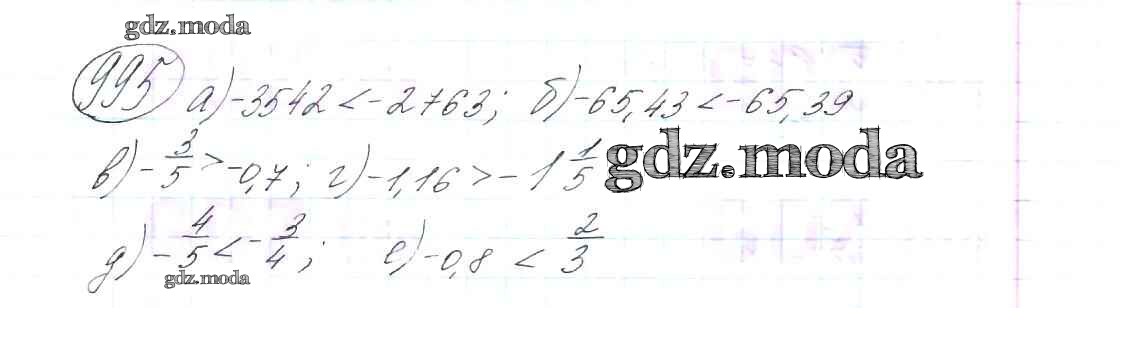 gdz.moda
995 а) -3542 < -2763; б) -65,43 < -65,39
в) -3/5 > -0,7; г) -1,16 > -1 1/5 gdz.moda
д) -4/5 < -3/4; е) -0,8 < 2/3
gdz.moda